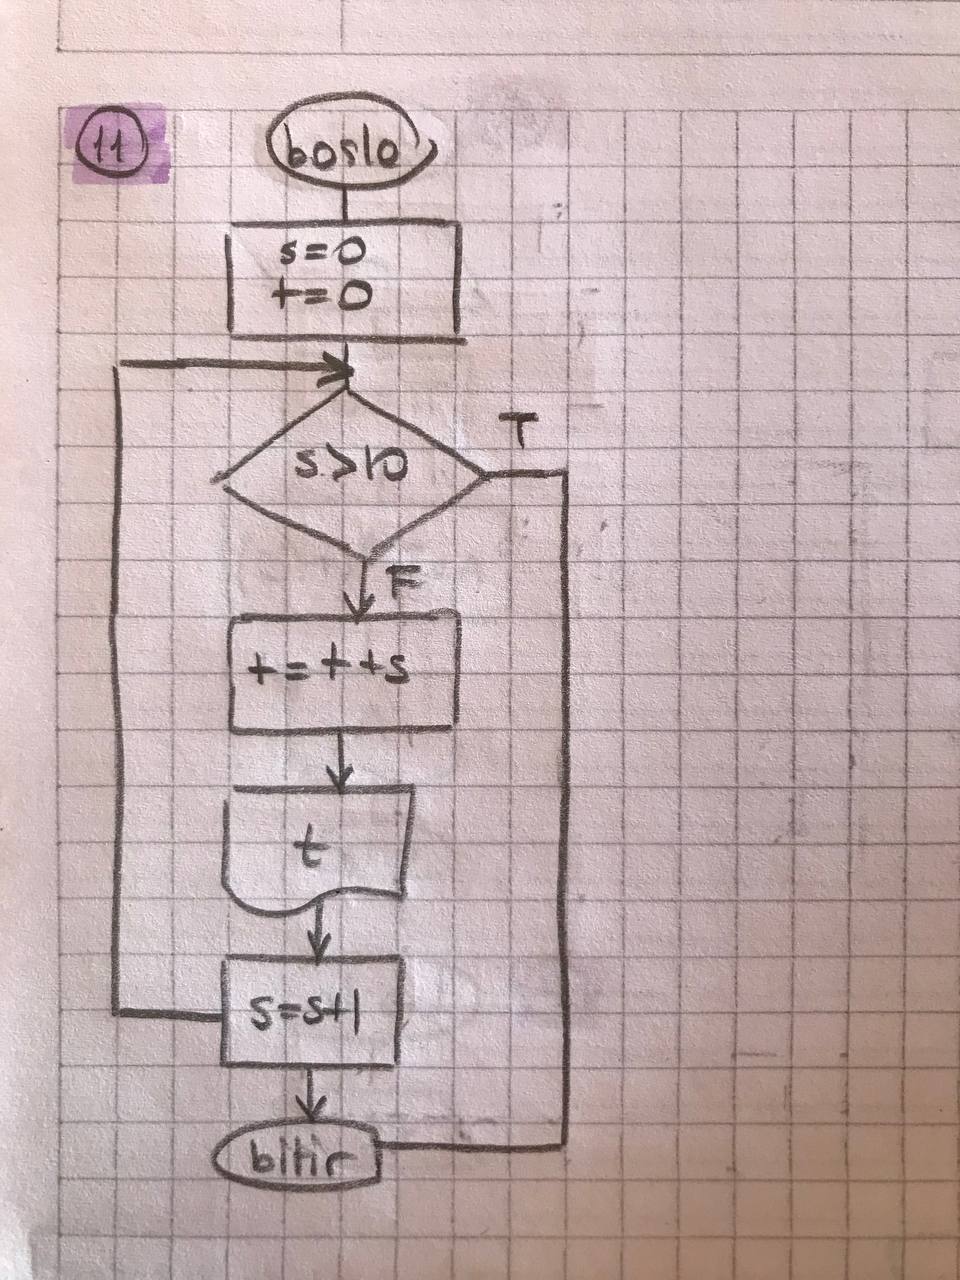 11
başla
s=0
t=0
s>10
T
F
t=t+s
t
s=s+1
bitir